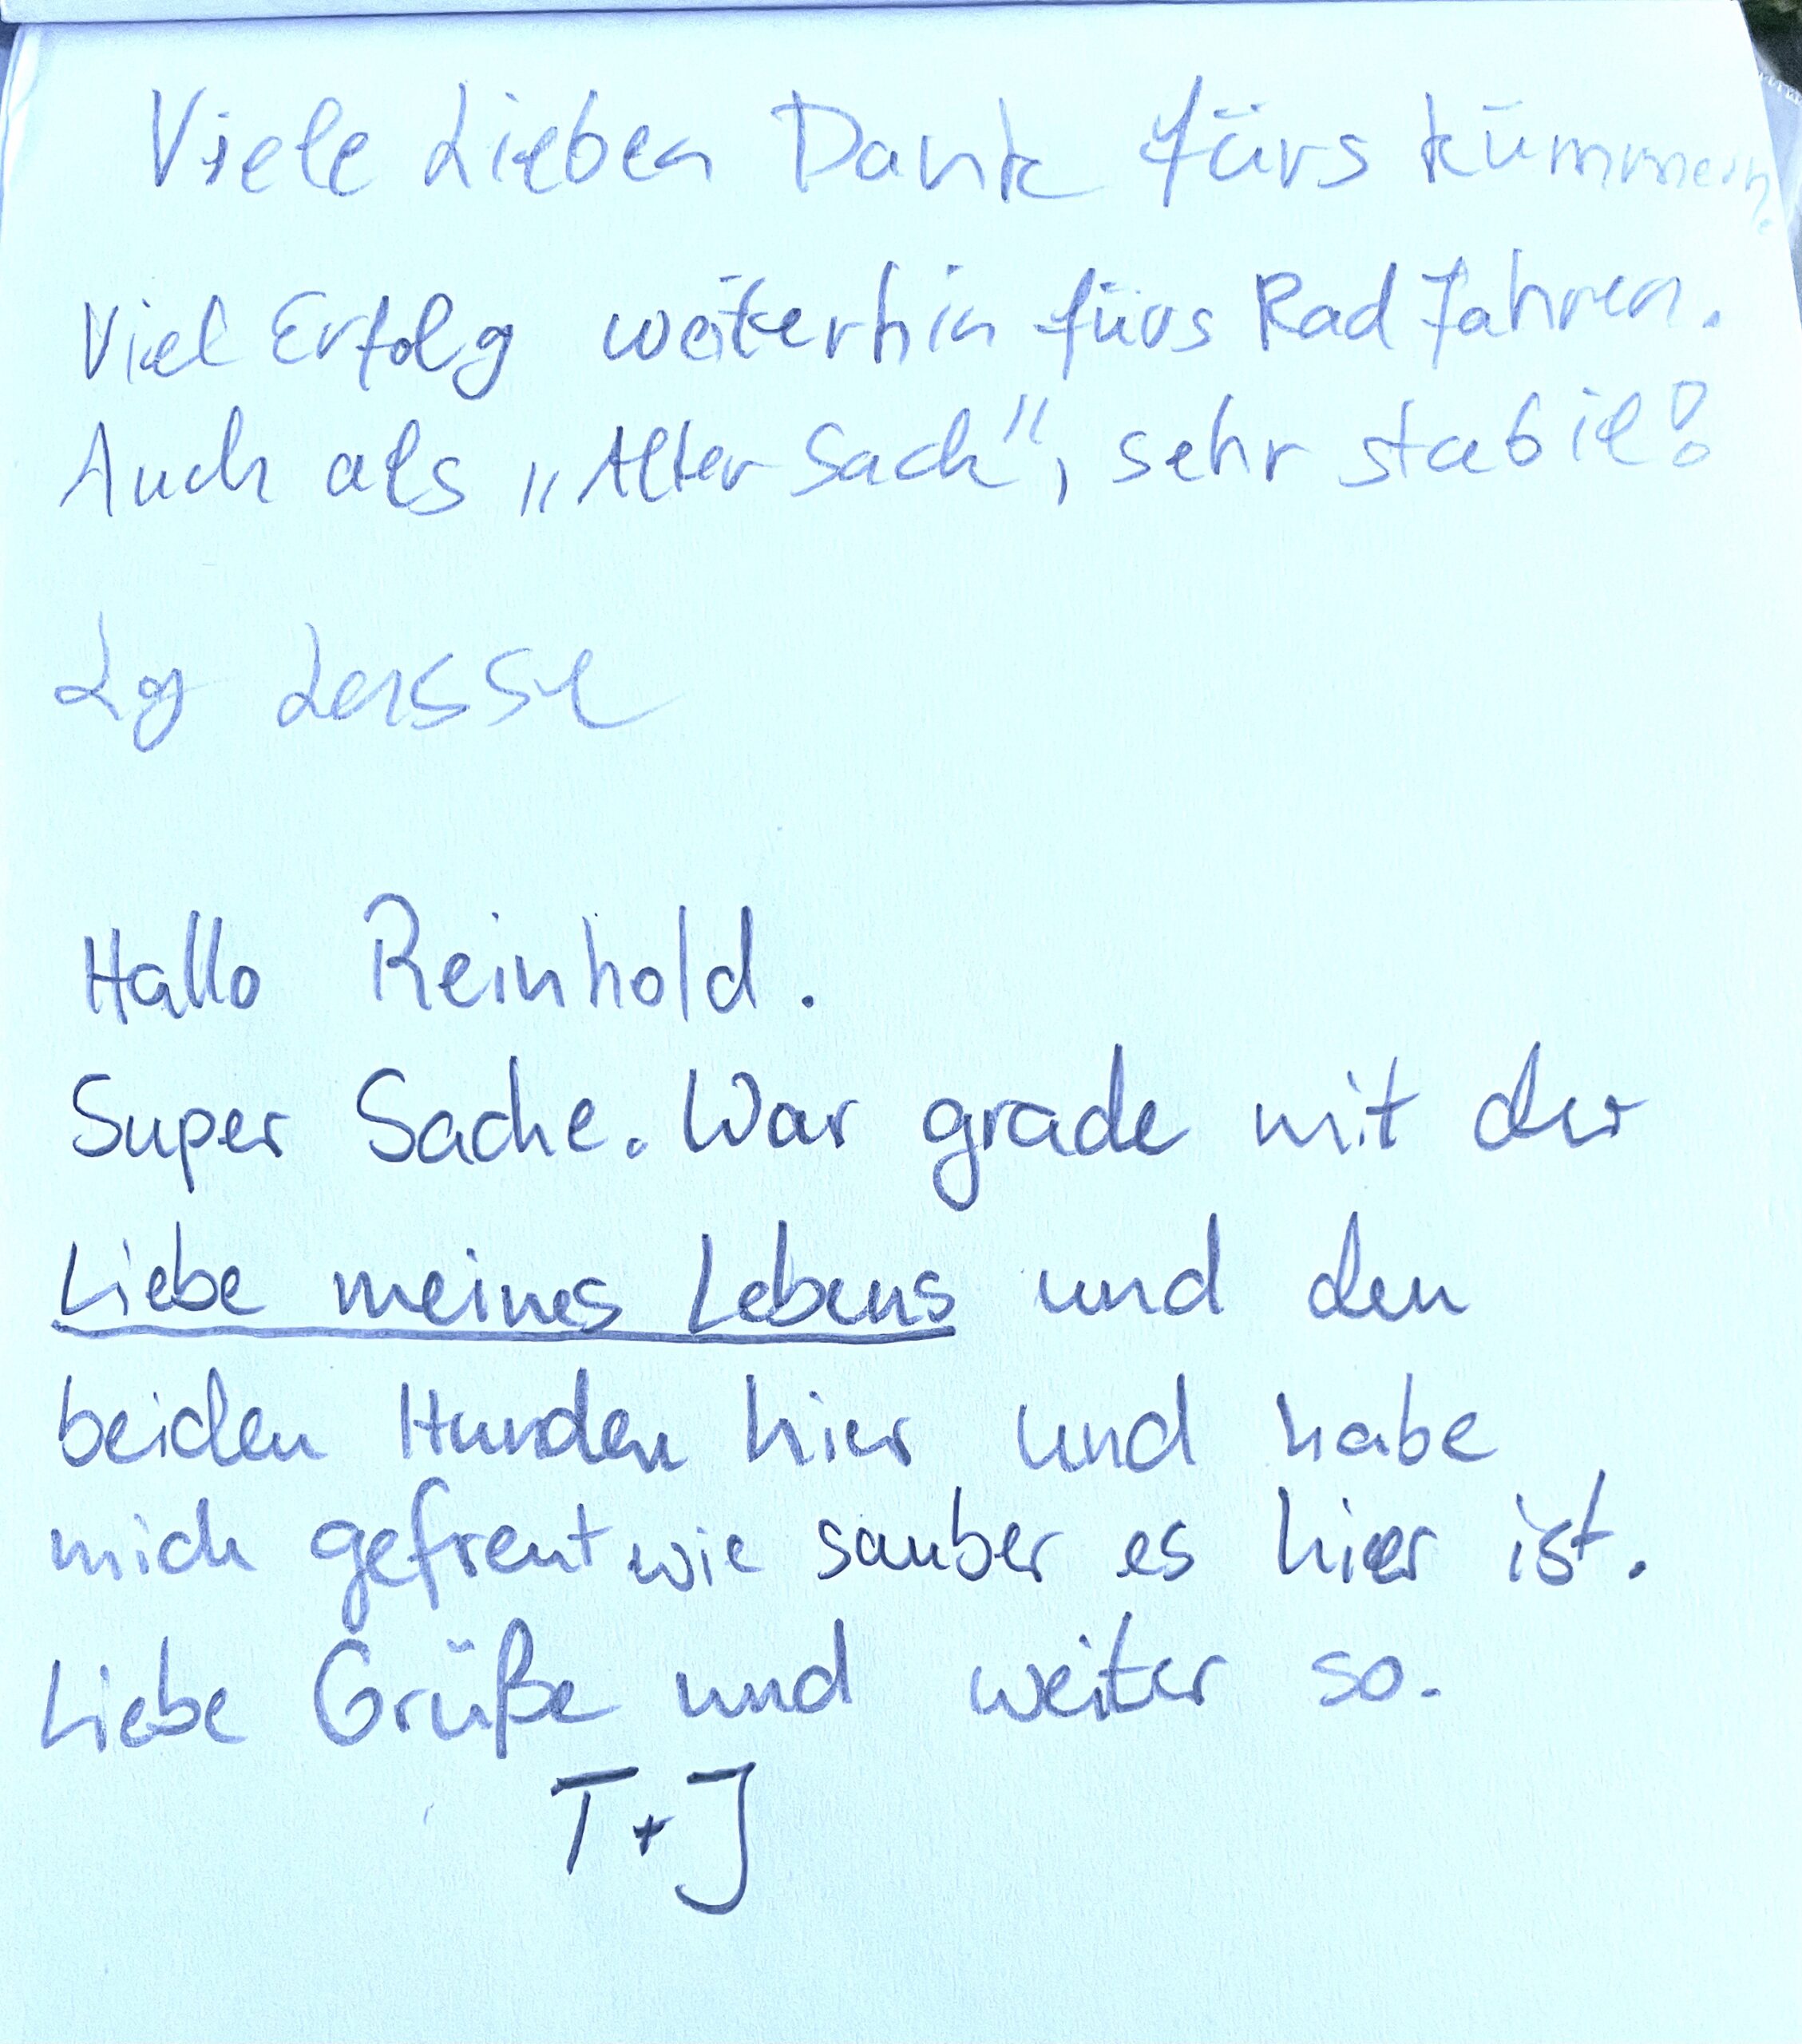 Viele Lieben Dank fürs kümmern.
Viel Erfolg weiterhin fürs Rad fahren.
Auch als „Alter Sack", sehr stabil!
Lg Lasse
Hallo Reinhold.
Super Sache. War grade mit der
Liebe meines Lebens und den
beiden Hunden hier und habe
mich gefreut wie sauber es hier ist.
Liebe Grüße und weiter so.
T+J